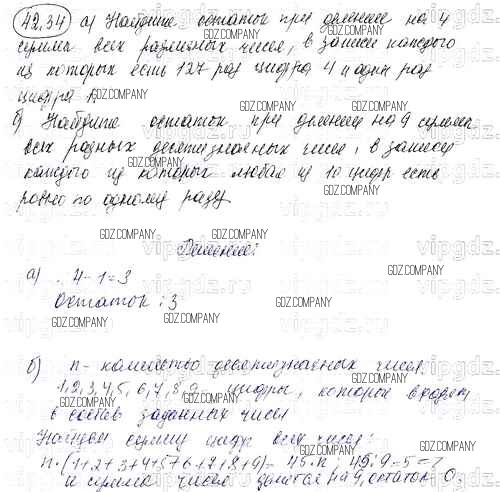 42.34 а) Найдите остаток при делении на 4
суммы всех различных чисел, в записи каждого
из которых есть 127 раз цифра 4 и один раз
цифра 1.
б) Найдите остаток при делении на 9 сумма
всех разных десятизначных чисел, в записи
каждого из которых любая из 10 цифр есть
ровно по одному разу
Решение:
а) . 4-1=3
Остаток : 3
б) n - количество десятизначных чисел
1,2,3,4,5, 6,7,8,9 - цифры, которые входят
в состав заданных чисел
Найдем сумму цифр всех чисел:
n·(1+2+3+4+5+6+7+8+9)= 45·n; 45:9=5 =>
и сумма чисел делится на 9, остаток 0.
GDZ.COMPANY
vipgdz.ru